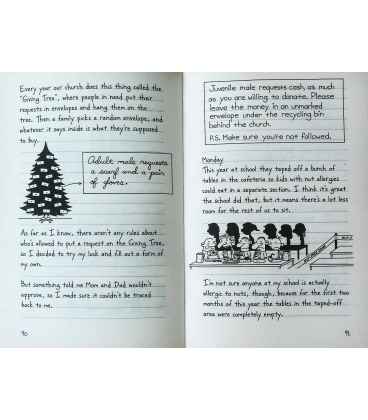 Every year our church does this thing called the
"Giving Tree", where people in need put their
requests in envelopes and hang them on the
tree. Then a family picks a random envelope, and
whatever it says inside is what they're supposed
to buy.
Adult male requests
a scarf and a pair
of gloves.
As far as I know, there aren't any rules about
who's allowed to put a request on the Giving Tree,
so I decided to try my luck and fill out a form of
my own.
But something told me Mom and Dad wouldn't
approve, so I made sure it couldn't be traced
back to me.
90
Juvenile male requests cash, as much
as you are willing to donate. Please
leave the money in an unmarked
envelope under the recycling bin
behind the church.
P.S. Make sure you're not followed.
Monday
This year at school they taped off a bunch of
tables in the cafeteria so kids with nut allergies
could eat in a separate section. I think it's great
the school did that, but it means there's a lot less
room for the rest of us to sit.
I'm not sure anyone at my school is actually
allergic to nuts, though, because for the first two
months of this year the tables in the taped-off
area were completely empty.
91